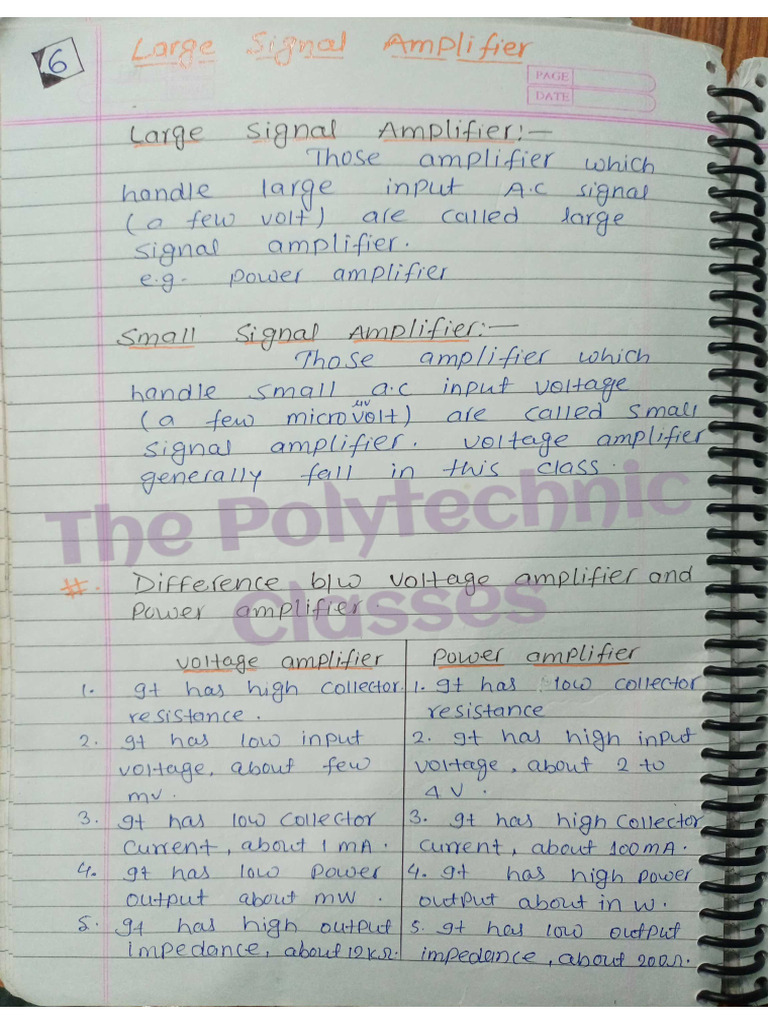 6
Large Signal Amplifier
PAGE
DATE
Large Signal Amplifier:-
Those amplifier which
handle large input A.C signal
(a few volt) are called large
signal amplifier.
e.g. power amplifier
Small Signal Amplifier:-
Those amplifier which
handle small a.c input voltage
μV
(a few microvolt) are called small
signal amplifier. voltage amplifier
generally fall in this class.
The Polytechnic
Classes
#. Difference b/w voltage amplifier and
power amplifier
voltage amplifier
1. It has high collector
resistance.
2. It has low input
voltage, about few
mv.
3. It has low collector
current, about 1 mA.
4. It has low power
output about mW.
5. It has high output
impedance, about 12kΩ.
power amplifier
1. It has low collector
resistance
2. It has high input
voltage, about 2 to
4 V.
3. It has high collector
current, about 100mA.
4. It has high power
output about in W.
5. It has low output
impedance, about 200Ω.